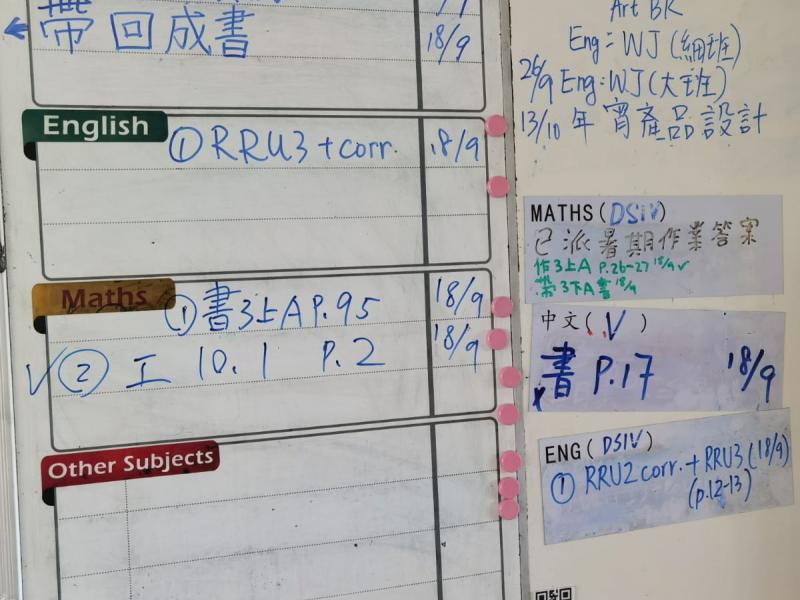 帶回成書 18/9
English
① RRU3 + corr. 18/9
Maths
① 書3上A P.95 18/9
✓ ② 工 10.1 P.2 18/9
Other Subjects
Art BK
Eng: WJ (細班)
26/9 Eng: WJ (大班)
13/10 年宵產品設計
MATHS (DSIV)
已派暑期作業答案
作3上A P.26-27 18/9 ✓
帶3下A書 18/9
中文( V )
書 P.17 18/9
ENG (DSIV)
① RRU2 corr. + RRU3 (18/9)
(p.12-13)